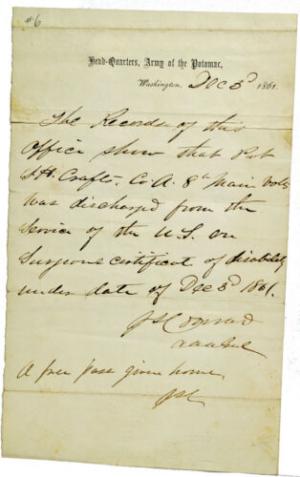 #6
Head-Quarters, Army of the Potomac,
Washington, Dec 3d 1861.
The Records of this
Office show that Pvt
Crafts. Co. A. 8th Main Vols
was discharged from the
Service of the U.S. on
Surgeons certificat of disability
under date of Dec 3d 1861.
A free pass given home